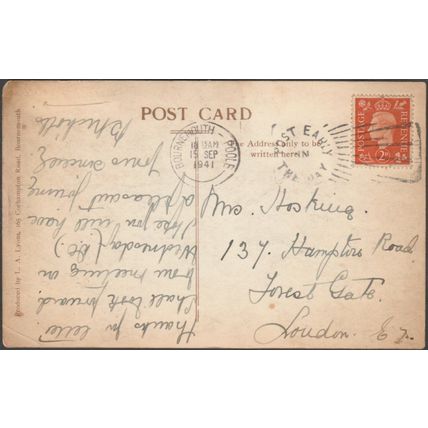 POST CARD
The Address only to be
written here.
BOURNEMOUTH - POOLE
15 SEP
1941
POST EARLY
IN
THE DAY
POSTAGE REVENUE
2D
Mrs. Hosking.
137 Hampton Road
Forest Gate.
London. E7.
Thanks for letter
Shall look forward
to our meeting on
Wednesday
hope you will have
a pleasant journey
Yours sincerely
B Nicholls
Produced by L. A. Lavons, 165 Corhampton Road, Bournemouth